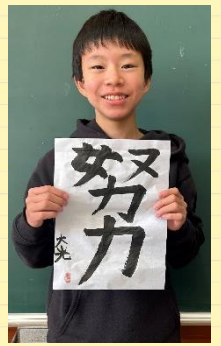 努力
大光